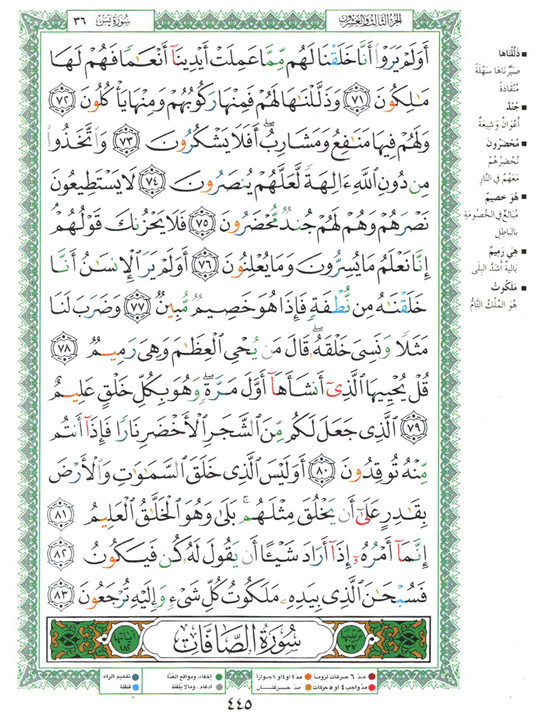 الجزء الثالث والعشرون
سورة يس ٣٦
أَوَلَمْ يَرَوْا۟ أَنَّا خَلَقْنَا لَهُم مِّمَّا عَمِلَتْ أَيْدِينَآ أَنْعَـٰمًا فَهُمْ لَهَا
مَـٰلِكُونَ ٧١ وَذَلَّلْنَـٰهَا لَهُمْ فَمِنْهَا رَكُوبُهُمْ وَمِنْهَا يَأْكُلُونَ ٧٢
وَلَهُمْ فِيهَا مَنَـٰفِعُ وَمَشَارِبُ ۖ أَفَلَا يَشْكُرُونَ ٧٣ وَٱتَّخَذُوا۟
مِن دُونِ ٱللَّهِ ءَالِهَةً لَّعَلَّهُمْ يُنصَرُونَ ٧٤ لَا يَسْتَطِيعُونَ
نَصْرَهُمْ وَهُمْ لَهُمْ جُندٌ مُّحْضَرُونَ ٧٥ فَلَا يَحْزُنكَ قَوْلُهُمْ ۘ
إِنَّا نَعْلَمُ مَا يُسِرُّونَ وَمَا يُعْلِنُونَ ٧٦ أَوَلَمْ يَرَ ٱلْإِنسَـٰنُ أَنَّا
خَلَقْنَـٰهُ مِن نُّطْفَةٍ فَإِذَا هُوَ خَصِيمٌ مُّبِينٌ ٧٧ وَضَرَبَ لَنَا
مَثَلًا وَنَسِىَ خَلْقَهُۥ ۖ قَالَ مَن يُحْىِ ٱلْعِظَـٰمَ وَهِىَ رَمِيمٌ ٧٨
قُلْ يُحْيِيهَا ٱلَّذِىٓ أَنشَأَهَآ أَوَّلَ مَرَّةٍ ۖ وَهُوَ بِكُلِّ خَلْقٍ عَلِيمٌ
٧٩ ٱلَّذِى جَعَلَ لَكُم مِّنَ ٱلشَّجَرِ ٱلْأَخْضَرِ نَارًا فَإِذَآ أَنتُم
مِّنْهُ تُوقِدُونَ ٨٠ أَوَلَيْسَ ٱلَّذِى خَلَقَ ٱلسَّمَـٰوَٰتِ وَٱلْأَرْضَ
بِقَـٰدِرٍ عَلَىٰٓ أَن يَخْلُقَ مِثْلَهُم ۚ بَلَىٰ وَهُوَ ٱلْخَلَّـٰقُ ٱلْعَلِيمُ ٨١
إِنَّمَآ أَمْرُهُۥٓ إِذَآ أَرَادَ شَيْـًٔا أَن يَقُولَ لَهُۥ كُن فَيَكُونُ ٨٢
فَسُبْحَـٰنَ ٱلَّذِى بِيَدِهِۦ مَلَكُوتُ كُلِّ شَىْءٍ وَإِلَيْهِ تُرْجَعُونَ ٨٣
ترتيبها ٣٧ سُورَةُ الصَّافَّاتِ آياتها ١٨٢
ذَلَّلْنَاهَا
صَيَّرْنَاهَا سَهْلَةً
مُنْقَادَةً
جُنْدٌ
أَعْوَانٌ وَشِيعَةٌ
مُحْضَرُونَ
نُحْضِرُهُمْ
مَعَهُمْ فِي النَّارِ
هُوَ خَصِيمٌ
مُبَالِغٌ فِي الْخُصُومَةِ
بِالْبَاطِلِ
هِيَ رَمِيمٌ
بَالِيَةٌ أَشَدَّ الْبِلَى
مَلَكُوتُ
هُوَ الْمُلْكُ التَّامُّ
مدّ ٦ حركات لزوماً مدّ ٢ أو ٤ أو ٦ جوازاً إخفاء، ومواقع الغُنَّة تفخيم الراء
مدّ واجب ٤ أو ٥ حركات مدّ حركتان ادغام، ومالا يلفظ قلقلة
٤٤٥